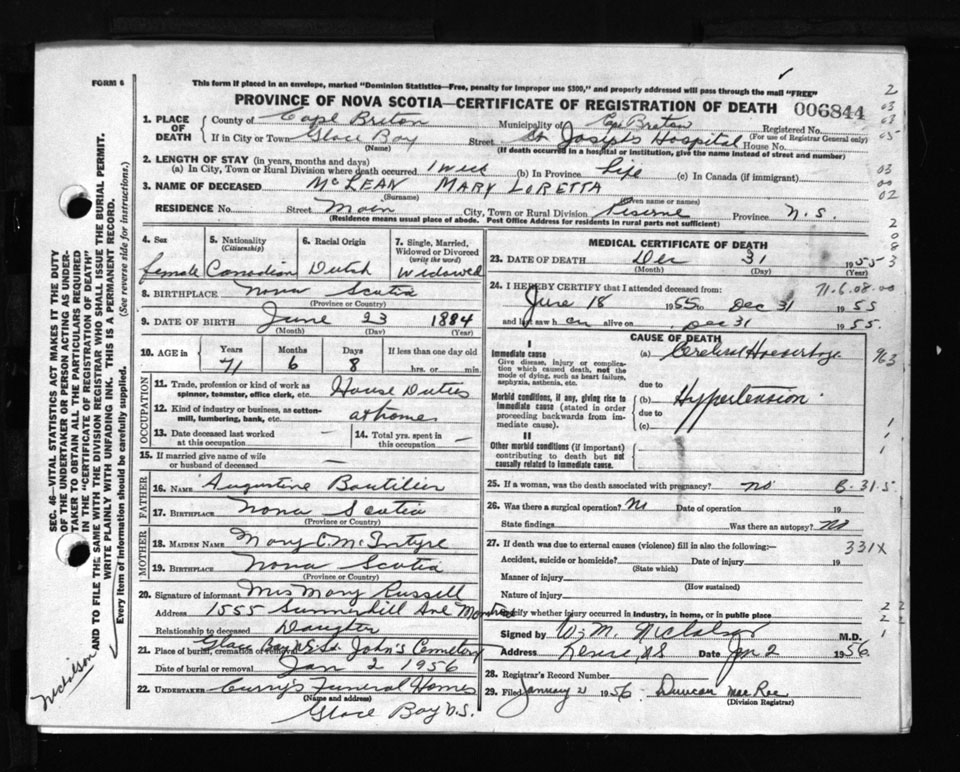 FORM 6
This form if placed in an envelope, marked "Dominion Statistics—Free, penalty for improper use $300," and properly addressed will pass through the mail "FREE"
PROVINCE OF NOVA SCOTIA—CERTIFICATE OF REGISTRATION OF DEATH 006844
1. PLACE OF DEATH { County of Cape Breton Municipality of Cape Breton Registered No.
(For use of Registrar General only)
If in City or Town Glace Bay Street St Joseph's Hospital House No.
(Name) (If death occurred in a hospital or institution, give the name instead of street and number)
2. LENGTH OF STAY (in years, months and days)
(a) In City, Town or Rural Division where death occurred 1 week (b) In Province Life (c) In Canada (if immigrant)
3. NAME OF DECEASED McLEAN MARY LORETTA
(Surname) (Given name or names)
RESIDENCE No. Street Main City, Town or Rural Division Reserve Province N.S.
(Residence means usual place of abode. Post Office Address for residents in rural parts not sufficient)
4. Sex
female
5. Nationality
(Citizenship)
Canadian
6. Racial Origin
Dutch
7. Single, Married, Widowed or Divorced
(write the word)
Widowed
8. BIRTHPLACE Nova Scotia
(Province or Country)
9. DATE OF BIRTH June 23 1884
(Month) (Day) (Year)
10. AGE in Years Months Days If less than one day old
71 6 8 hrs. or min.
OCCUPATION
11. Trade, profession or kind of work as spinner, teamster, office clerk, etc. House Duties
12. Kind of industry or business, as cotton-mill, lumbering, bank, etc. at home
13. Date deceased last worked at this occupation — 14. Total yrs. spent in this occupation —
15. If married give name of wife or husband of deceased —
FATHER
16. Name Augustine Boutilier
17. Birthplace Nova Scotia
(Province or Country)
MOTHER
18. Maiden Name Mary C. McIntyre
19. Birthplace Nova Scotia
(Province or Country)
20. Signature of informant Mrs Mary Russell
Address 1555 Summerhill Ave Montreal
Relationship to deceased Daughter
21. Place of burial, cremation or removal Glace Bay N.S. St. John's Cemetery
Date of burial or removal Jan 2 1956
22. UNDERTAKER Curry's Funeral Homes
(Name and address)
Glace Bay N.S.
MEDICAL CERTIFICATE OF DEATH
23. DATE OF DEATH Dec 31 1955
(Month) (Day) (Year)
24. I HEREBY CERTIFY that I attended deceased from:
June 18 1955 to Dec 31 1955
and last saw her alive on Dec 31 1955.
CAUSE OF DEATH
I
Immediate cause
Give disease, injury or complication which caused death, not the mode of dying, such as heart failure, asphyxia, asthenia, etc.
(a) Cerebral Hemorrhage
due to
Morbid conditions, if any, giving rise to immediate cause (stated in order proceeding backwards from immediate cause).
(b) Hypertension
due to
(c)
II
Other morbid conditions (if important) contributing to death but not causally related to immediate cause.
25. If a woman, was the death associated with pregnancy? no
26. Was there a surgical operation? No Date of operation 19
State findings Was there an autopsy? No
27. If death was due to external causes (violence) fill in also the following:—
Accident, suicide or homicide? Date of injury 19
(State which)
Manner of injury
(How sustained)
Nature of injury
Specify whether injury occurred in industry, in home, or in public place
Signed by W. M. Nicholson M.D.
Address Reserve, N.S Date Jan 2 1956
28. Registrar's Record Number
29. Filed January 2 1956 Duncan MacRae
(Division Registrar)
71.6.08.00
B-31.5
331X
SEC. 46—VITAL STATISTICS ACT MAKES IT THE DUTY OF THE UNDERTAKER OR PERSON ACTING AS UNDERTAKER TO OBTAIN ALL THE PARTICULARS REQUIRED IN THE "CERTIFICATE OF REGISTRATION OF DEATH" AND TO FILE THE SAME WITH THE DIVISION REGISTRAR WHO SHALL ISSUE THE BURIAL PERMIT.
WRITE PLAINLY WITH UNFADING INK. THIS IS A PERMANENT RECORD.
Every item of information should be carefully supplied. (See reverse side for instructions.)
Nicholson